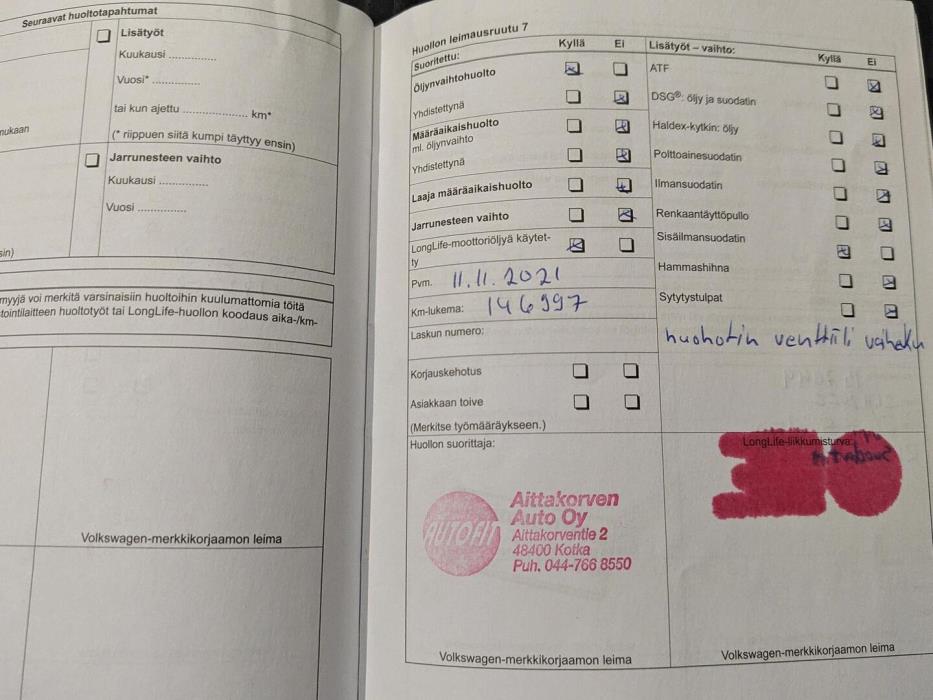 Seuraavat huoltotapahtumat
Lisätyöt
Kuukausi ..............
Vuosi* ..............
tai kun ajettu .................... km*
nukaan
(* riippuen siitä kumpi täyttyy ensin)
Jarrunesteen vaihto
Kuukausi ...............
Vuosi ...............
sin)
myyjä voi merkitä varsinaisiin huoltoihin kuulumattomia töitä
tointilaitteen huoltotyöt tai LongLife-huollon koodaus aika-/km-
Volkswagen-merkkikorjaamon leima
Huollon leimausruutu 7
Suoritettu: Kyllä Ei
Öljynvaihtohuolto
Yhdistettynä
Määräaikaishuolto
ml. öljynvaihto
Yhdistettynä
Laaja määräaikaishuolto
Jarrunesteen vaihto
LongLife-moottoriöljyä käytet-
ty
Pvm. 11.11.2021
Km-lukema: 146997
Laskun numero:
Korjauskehotus
Asiakkaan toive
(Merkitse työmääräykseen.)
Lisätyöt – vaihto: Kyllä Ei
ATF
DSG®: öljy ja suodatin
Haldex-kytkin: öljy
Polttoainesuodatin
Ilmansuodatin
Renkaantäyttöpullo
Sisäilmansuodatin
Hammashihna
Sytytystulpat
huohotin venttiili
Huollon suorittaja:
AUTOFIT
Aittakorven
Auto Oy
Aittakorventie 2
48400 Kotka
Puh. 044-766 8550
Volkswagen-merkkikorjaamon leima
LongLife-liikkumisturva:
Volkswagen-merkkikorjaamon leima